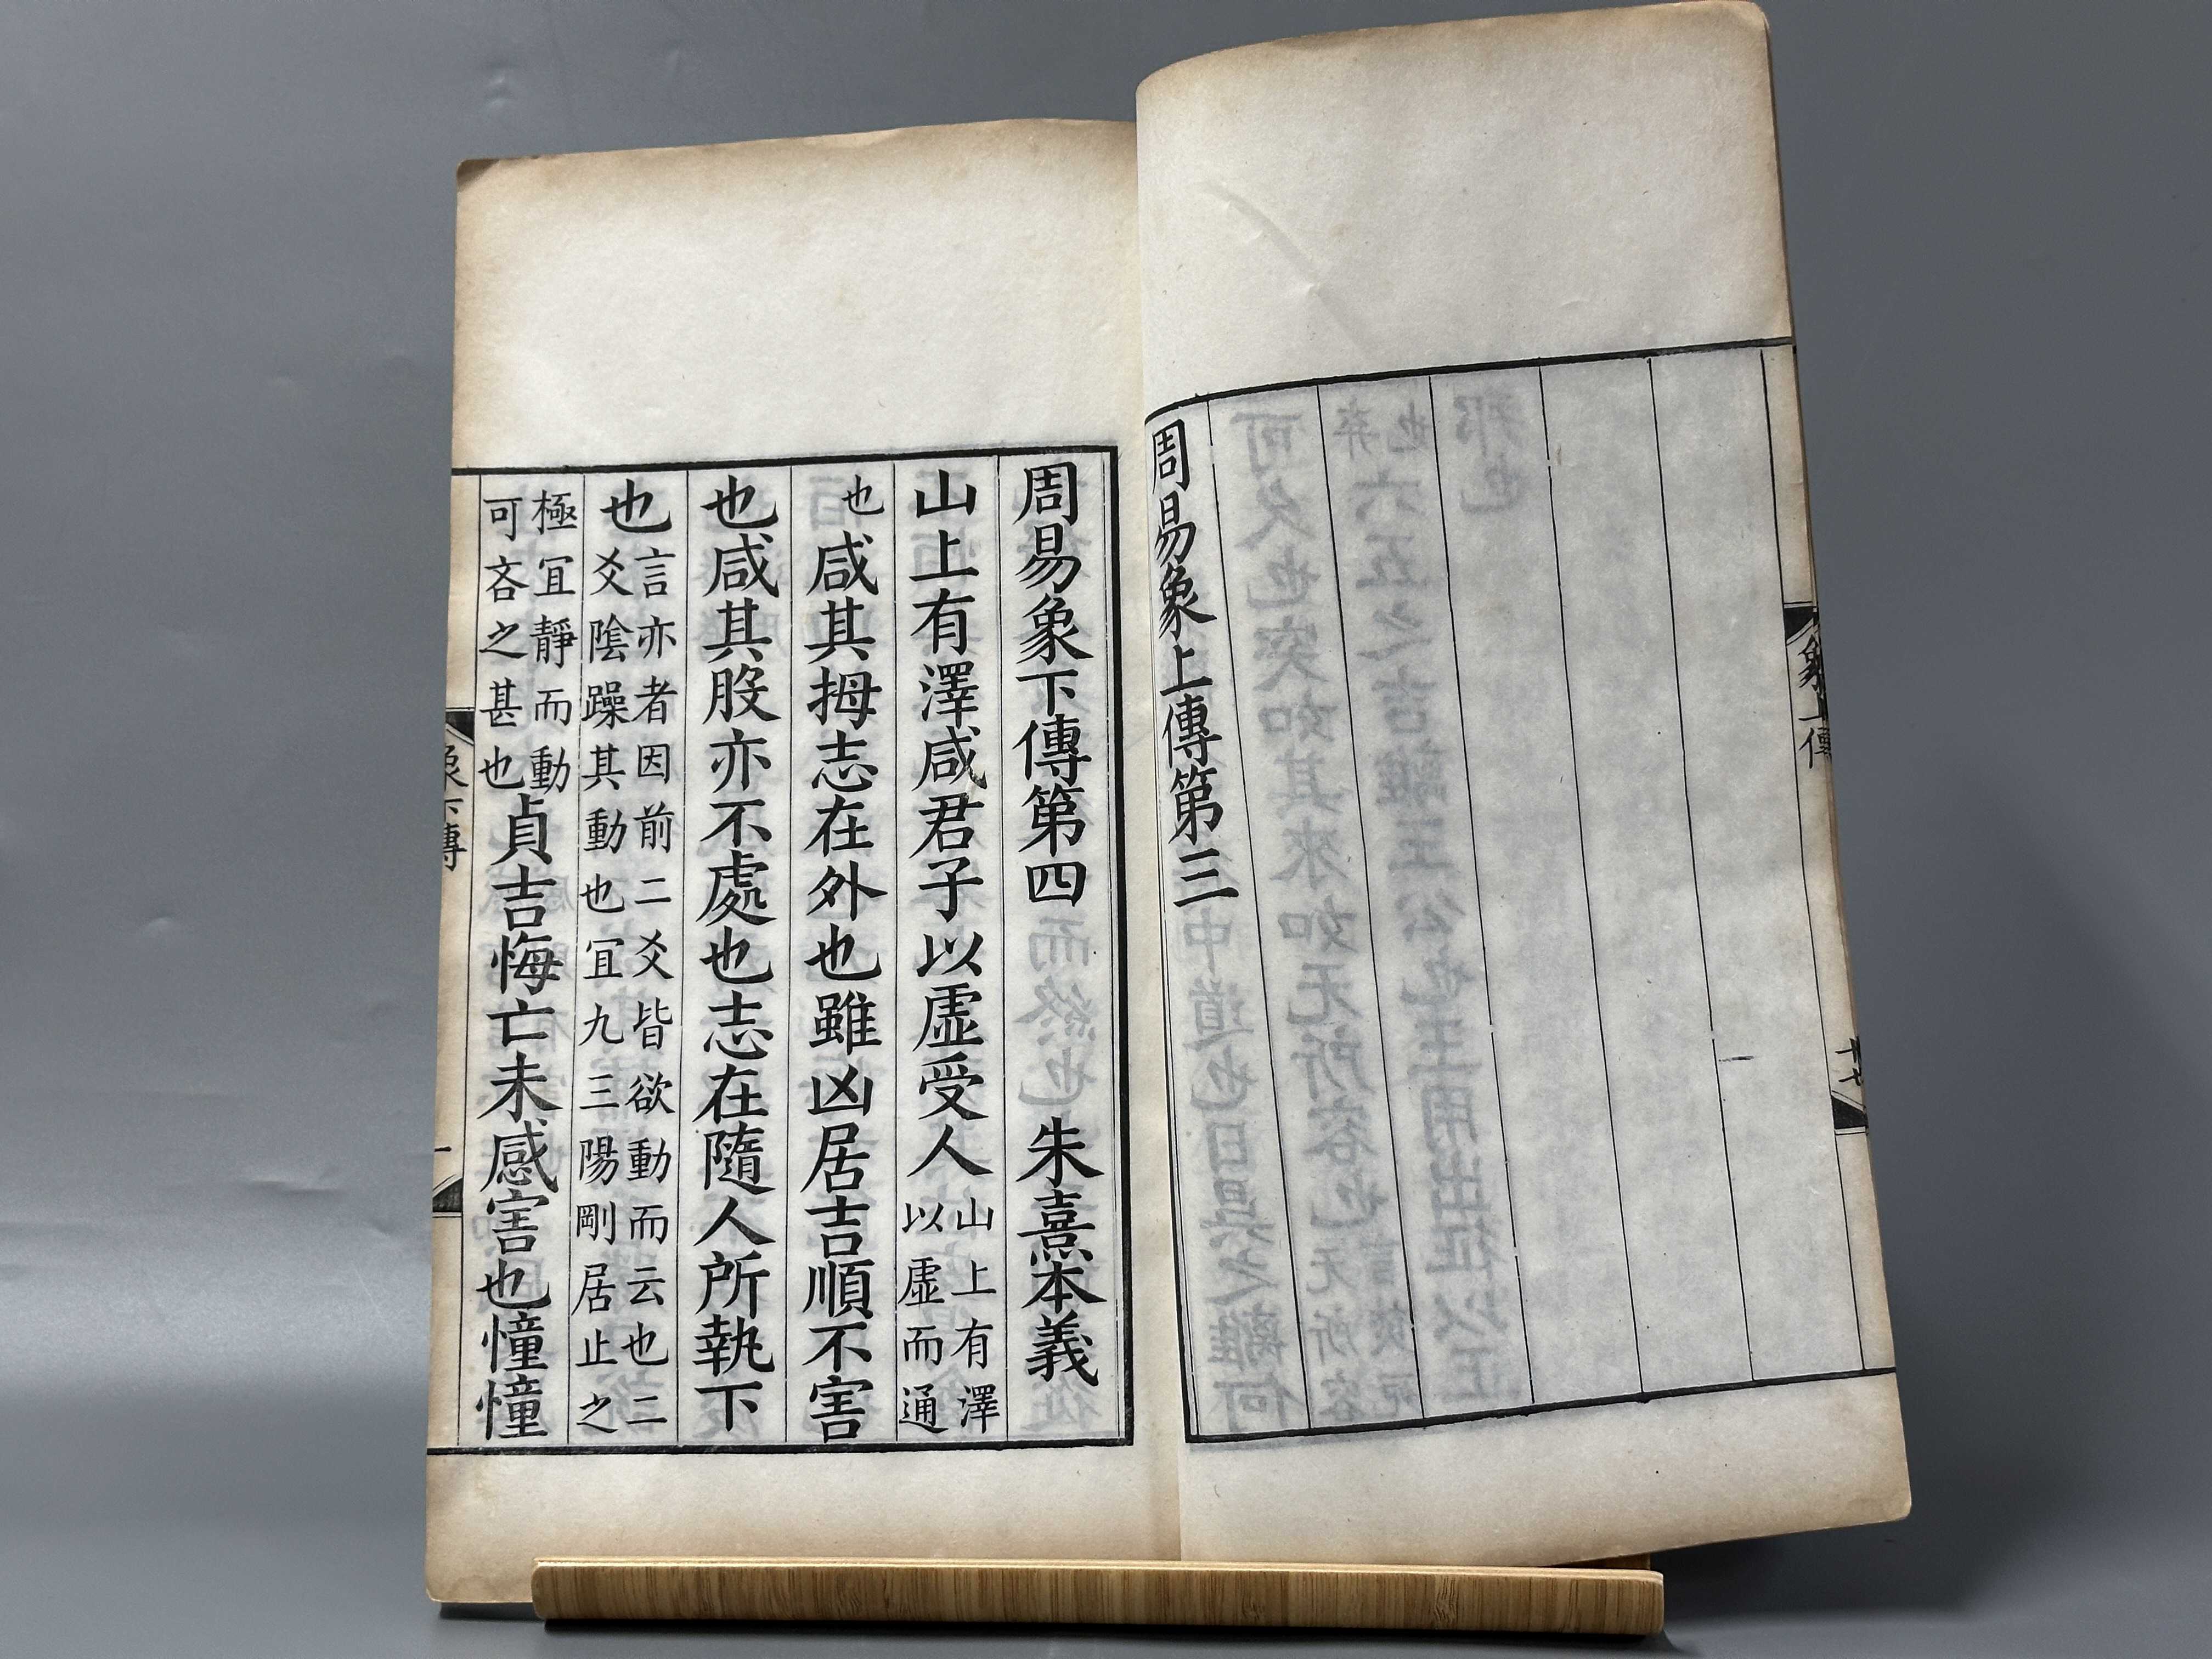 周易象上傳第三
象上傳
廿七
周易象下傳第四 朱熹本義
山上有澤咸君子以虛受人山上有澤
以虛而通
也咸其拇志在外也雖凶居吉順不害
也咸其股亦不處也志在隨人所執下
也言亦者因前二爻皆欲動而云也二
爻陰躁其動也宜九三陽剛居止之
極宜靜而動
可吝之甚也貞吉悔亡未感害也憧憧
象下傳
一